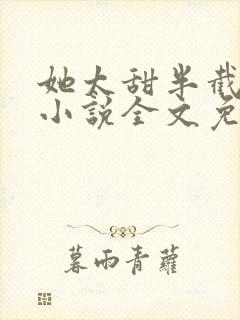 她太甜半截
小说全文免
暮雨青蘿